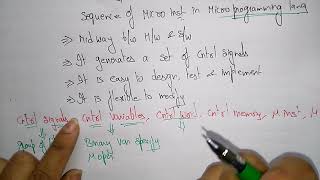 Sequence of Micro Inst in Microprogramming lang
⇒ Midway b/w H/w & S/w
⇒ It generates a set of Cntrl Signals
⇒ It is easy to design, test & implement
⇒ It is flexible to modify
Cntrl Signals, Cntrl Variables, Cntrl Word, Cntrl memory, μ Inst,
Group of Binary Var specify
μ opr